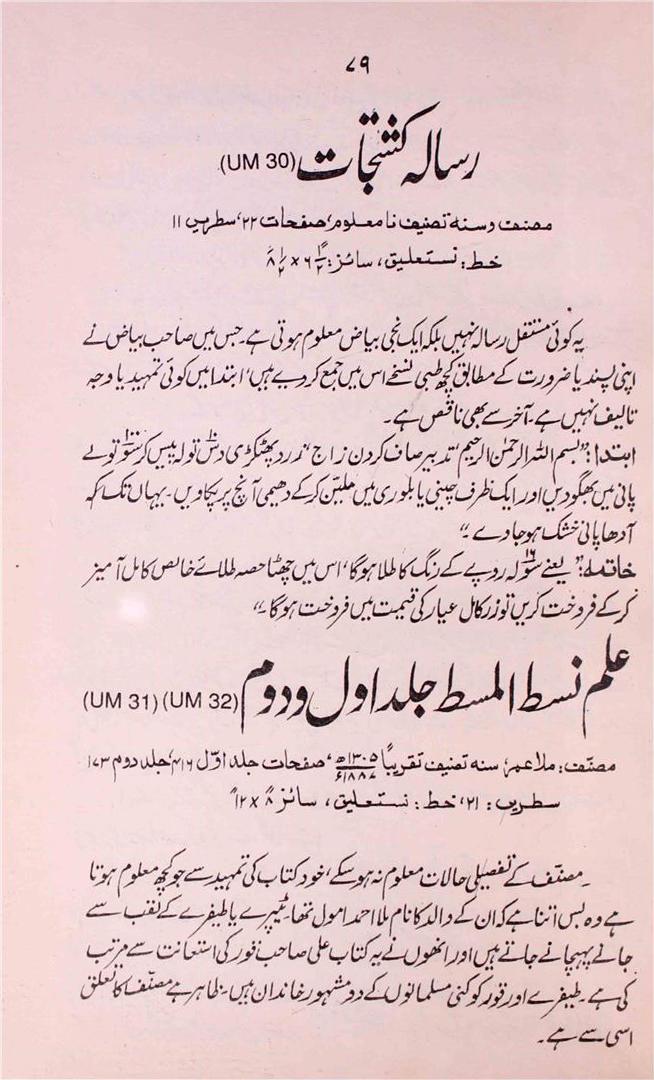 ۷۹
رسالہ کشتجات (UM 30)
مصنف و سنہ تصنیف نا معلوم، صفحات ۲۲، سطریں ۱۱
خط: نستعلیق، سائز: ۶ ۱/۲ × ۸ ۱/۲
یہ کوئی مستقل رسالہ نہیں بلکہ ایک نجی بیاض معلوم ہوتی ہے۔ جس میں صاحب بیاض نے
اپنی پسند یا ضرورت کے مطابق کچھ طبی نسخے اس میں جمع کر دیے ہیں، ابتدا میں کوئی تمہید یا وجہ
تالیف نہیں ہے۔ آخر سے بھی ناقص ہے۔
ابتدا: "بسم اللہ الرحمٰن الرحیم، تدبیر صاف کردن زاج، زرد پھٹکڑی دس۱۰ تولہ پیس کر سو۱۰۰ تولے
پانی میں بھگو دیں اور ایک ظرف چینی یا بلوری میں ملیّن کر کے دھیمی آنچ پر پکاویں۔ یہاں تک کہ
آدھا پانی خشک ہو جاوے۔"
خاتمہ: "یعنے سولہ۱۶ روپے کے رنگ کا طلا ہوگا، اس میں چھٹا حصہ طلائے خالص کامل آمیز
کر کے فروخت کریں تو زر کامل عیار کی قیمت میں فروخت ہوگا۔"
علم نسط المسط جلد اول و دوم (UM 32) (UM 31)
مصنّف: ملا عمر، سنہ تصنیف تقریباً ۱۳۰۵ھ/۱۸۸۷ء، صفحات جلد اوّل ۴۱۶، جلد دوم ۱۷۳
سطریں: ۲۱، خط: نستعلیق، سائز ۸" × ۱۲"
مصنّف کے تفصیلی حالات معلوم نہ ہو سکے، خود کتاب کی تمہید سے جو کچھ معلوم ہوتا
ہے وہ بس اتنا ہے کہ ان کے والد کا نام ملا احمد امول تھا، ٹیپرے یا طیفرے کے لقب سے
جانے پہچانے جاتے ہیں اور انھوں نے یہ کتاب علی صاحب فور کی استعانت سے مرتب
کی ہے۔ طیفرے اور فور کوکنی مسلمانوں کے دو مشہور خاندان ہیں۔ ظاہر ہے مصنّف کا تعلق
اسی سے ہے۔